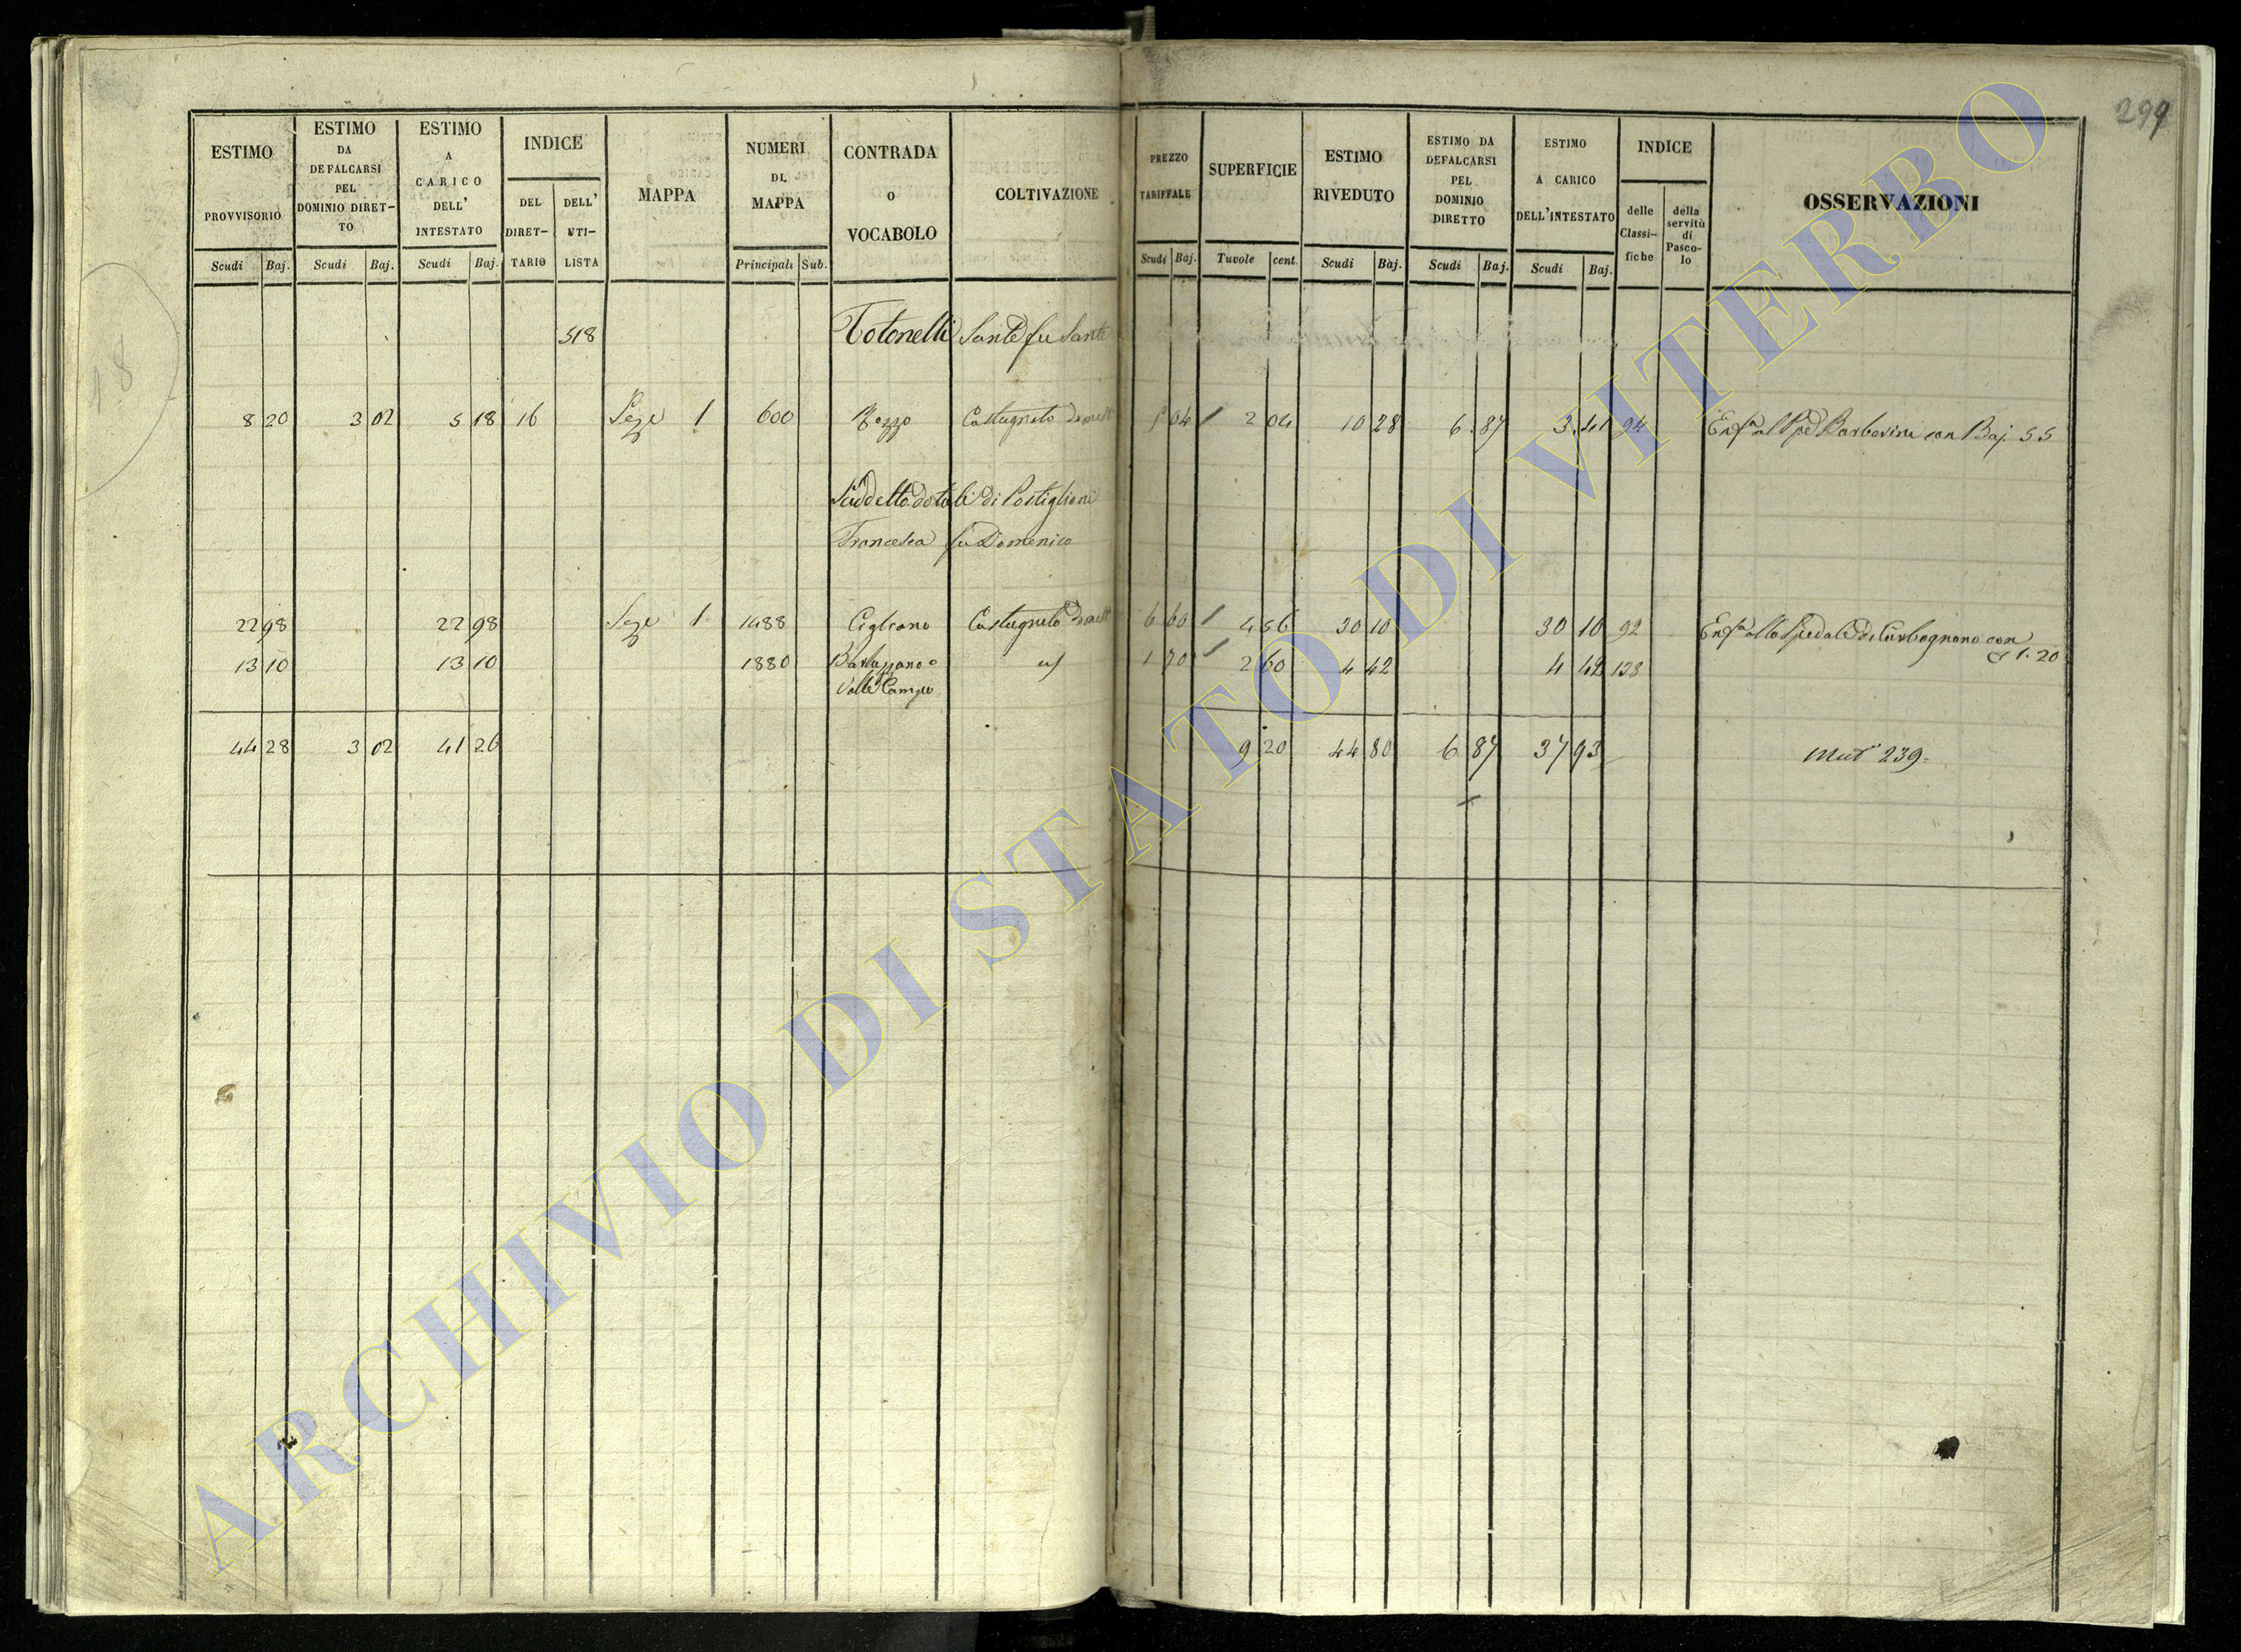 299
ESTIMO PROVVISORIO
ESTIMO DA DEFALCARSI PEL DOMINIO DIRET-TO
ESTIMO A CARICO DELL' INTESTATO
INDICE
DEL DIRET-TARIO
DELL' UTI-LISTA
MAPPA
NUMERI DI MAPPA
CONTRADA o VOCABOLO
COLTIVAZIONE
PREZZO TARIFFALE
SUPERFICIE
ESTIMO RIVEDUTO
ESTIMO DA DEFALCARSI PEL DOMINIO DIRETTO
ESTIMO A CARICO DELL'INTESTATO
INDICE
delle Classi-fiche
della servitù di Pasco-lo
OSSERVAZIONI
Scudi Baj. Scudi Baj. Scudi Baj. Principali Sub. Scudi Baj. Tavole cent. Scudi Baj. Scudi Baj. Scudi Baj.
518 Totonelli Sante fu Sante
8 20 3 02 5 18 16 Sez.e 1 600 Pozzo Castagneto domest 5 04 2 04 10 28 6 87 3 41 94 Barberini con Baj. 55
Suddetto dotali di Postiglioni
Francesca fu Domenico
22 98 22 98 Sez.e 1 1488 Cigliano Castagneto domest 6 60 4 56 30 10 30 10 92 Enf.a allo Spedale di Carbognano con
1.20
13 10 13 10 1880 Barlazzano o 1 70 2 60 4 42 4 42 128
Valle Campo
44 28 3 02 41 26 9 20 44 80 6 87 37 93 Mut.e 239
ARCHIVIO DI STATO DI VITERBO